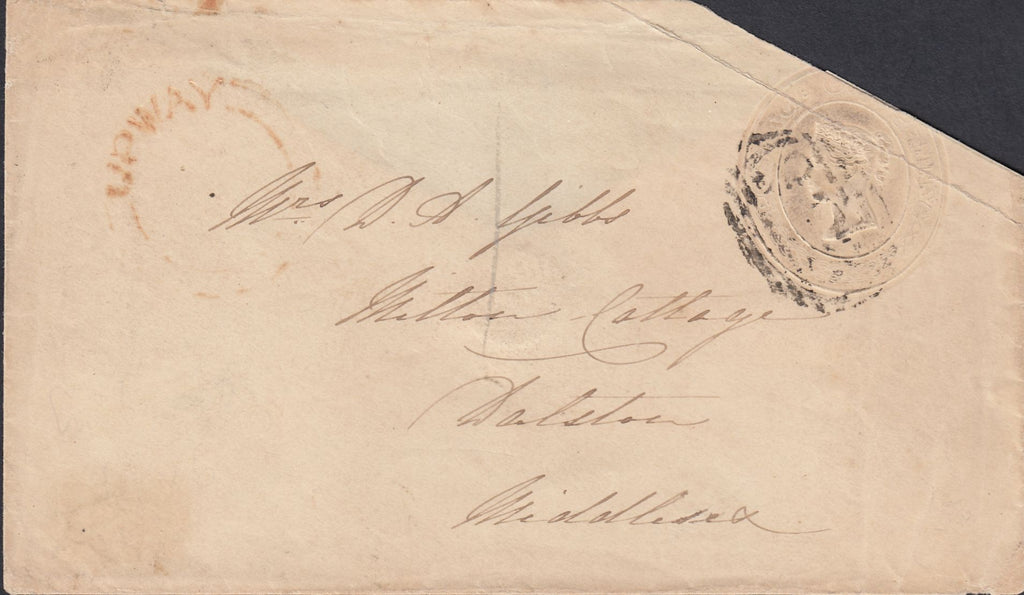 UPWAY
Mrs D. A. Gibbs
Milton Cottage
Dalston
Middlesex